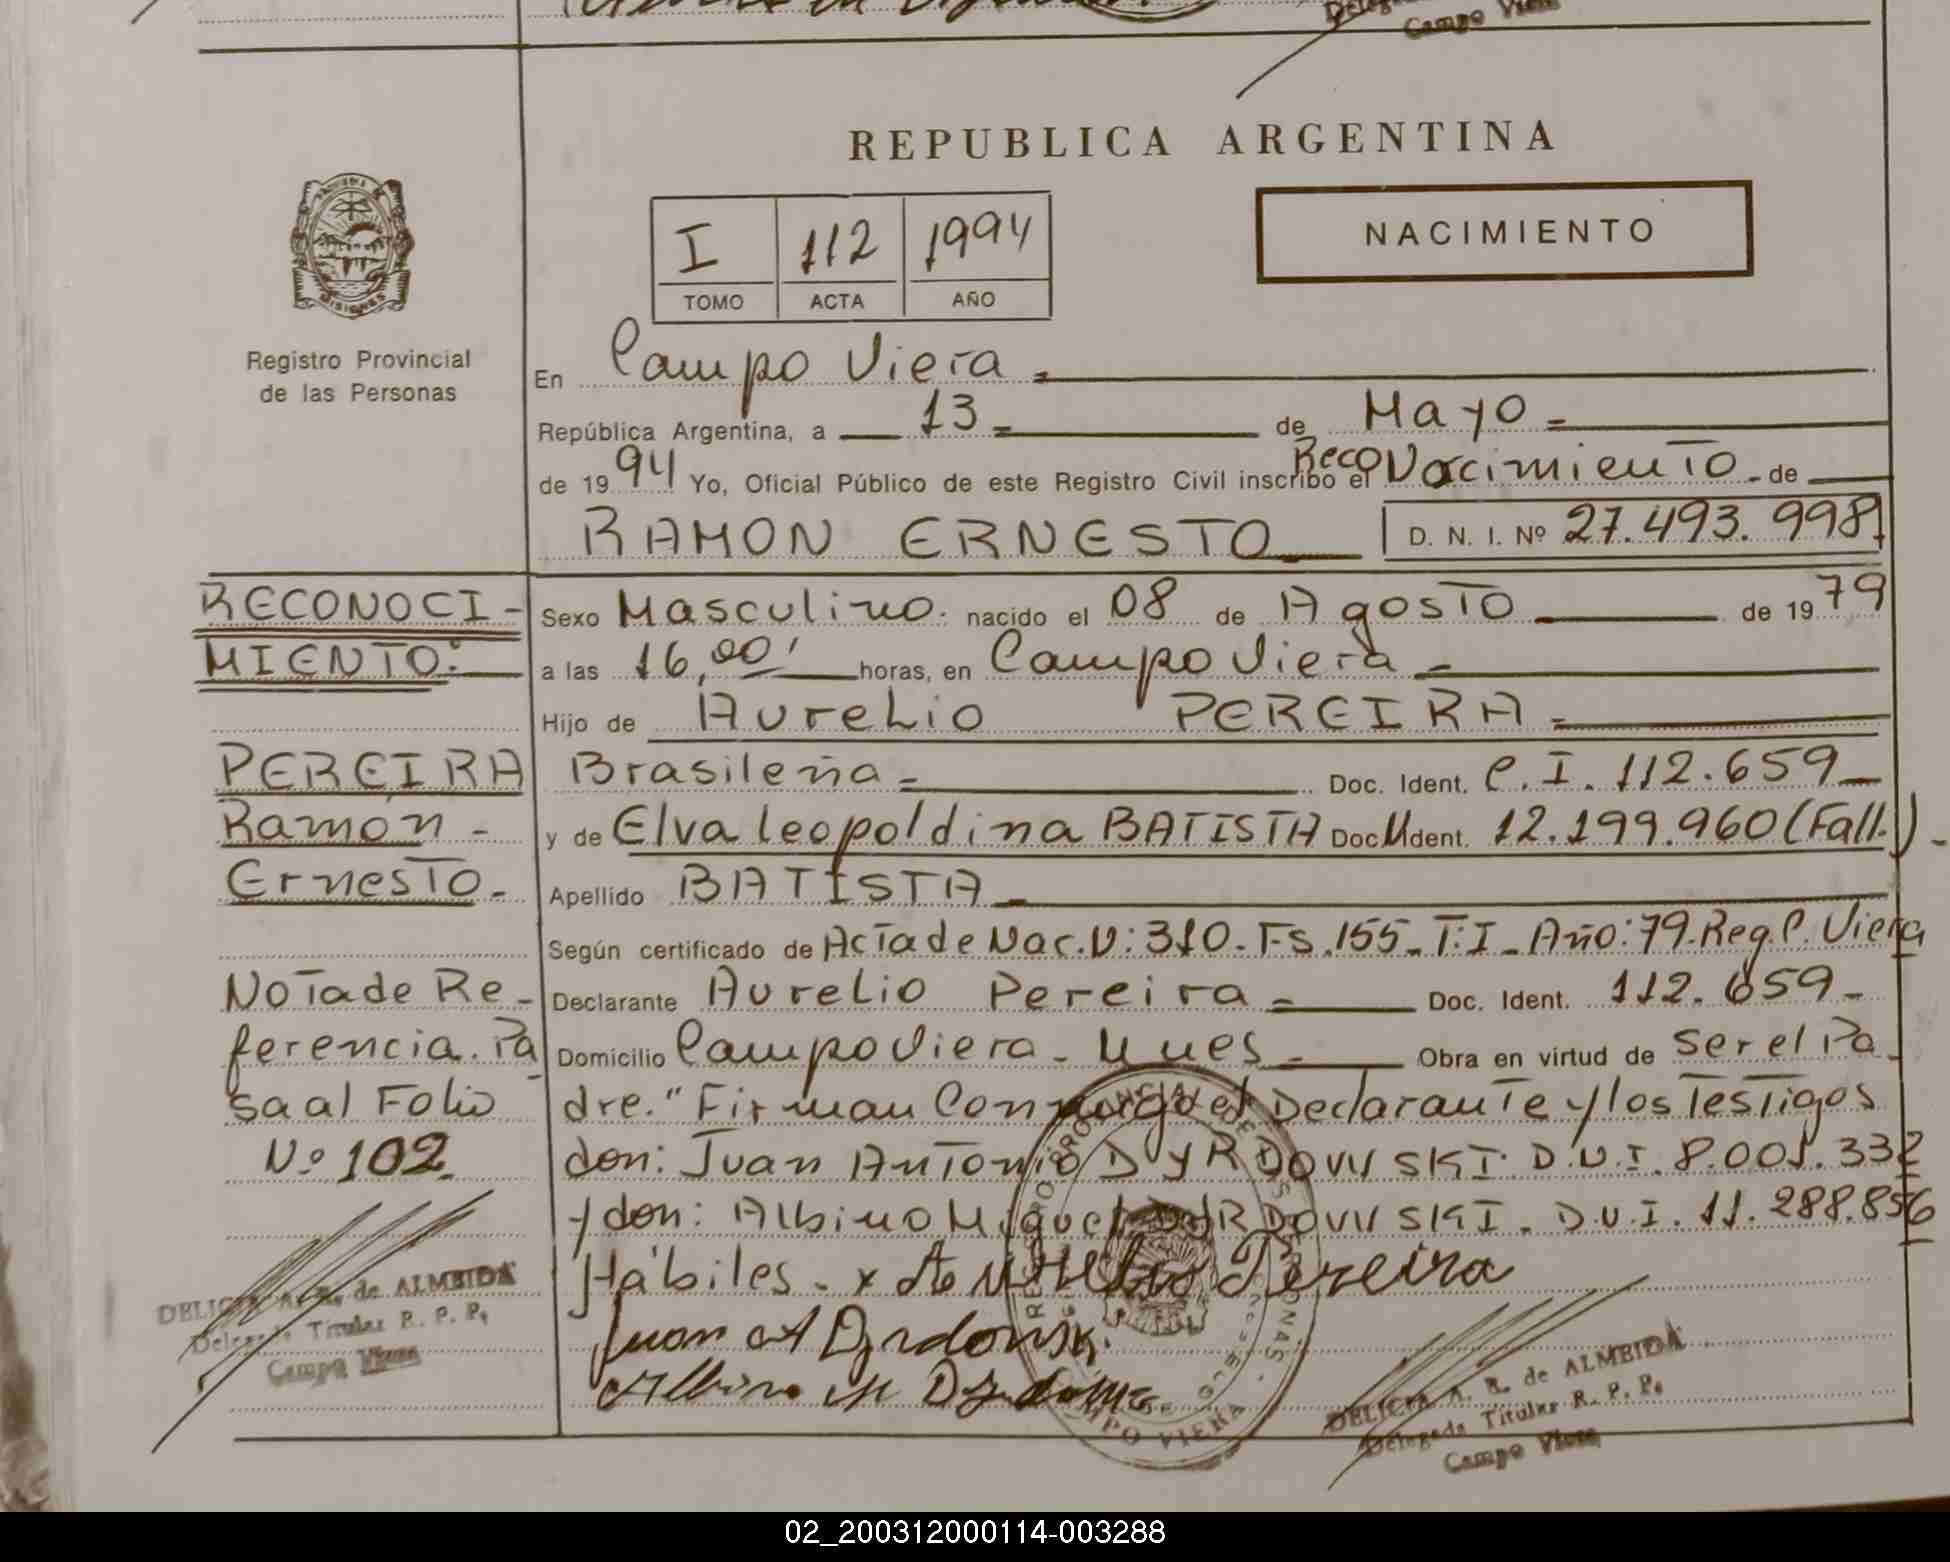 Campo Viera
REPUBLICA ARGENTINA
NACIMIENTO
I 112 1994
TOMO ACTA AÑO
MISIONES
Registro Provincial
de las Personas
En Campo Viera
República Argentina, a 13 de Mayo
de 1994 Yo, Oficial Público de este Registro Civil inscribo el Reco Nacimiento de
RAMON ERNESTO D. N. I. Nº 27.493.998
RECONOCI-
MIENTO:
PEREIRA
Ramón
Ernesto
Nota de Re-
ferencia. Pa
sa al Folio
Nº 102
DELICIA A. R. de ALMEIDA
Delegada Titular R. P. P.
Campo Viera
Sexo Masculino nacido el 08 de Agosto de 1979
a las 16,00' horas, en Campo Viera
Hijo de Aurelio PEREIRA
Brasileña Doc. Ident. C.I. 112.659
y de Elva Leopoldina BATISTA Doc. Ident. 12.199.960 (Fall.)
Apellido BATISTA
Según certificado de Acta de Nac. N: 310. Fs. 155. T: I. Año: 79. Reg. C. Viera
Declarante Aurelio Pereira Doc. Ident. 112.659
Domicilio Campo Viera Obra en virtud de ser el Pa
dre." Firman Conmigo el Declarante y los Testigos
don: Juan Antonio DYRDOWSKI D.N.I. 8.001.332
y don: Albino Miguel DYRDOWSKI. D.N.I. 11.288.856
Hábiles. x Aurelio Pereira
Juan A Dyrdowski
Albino M
REGISTRO PROVINCIAL DE LAS PERSONAS
CAMPO VIERA
DELICIA A. R. de ALMEIDA
Delegada Titular R. P. P.
Campo Viera
02_200312000114-003288